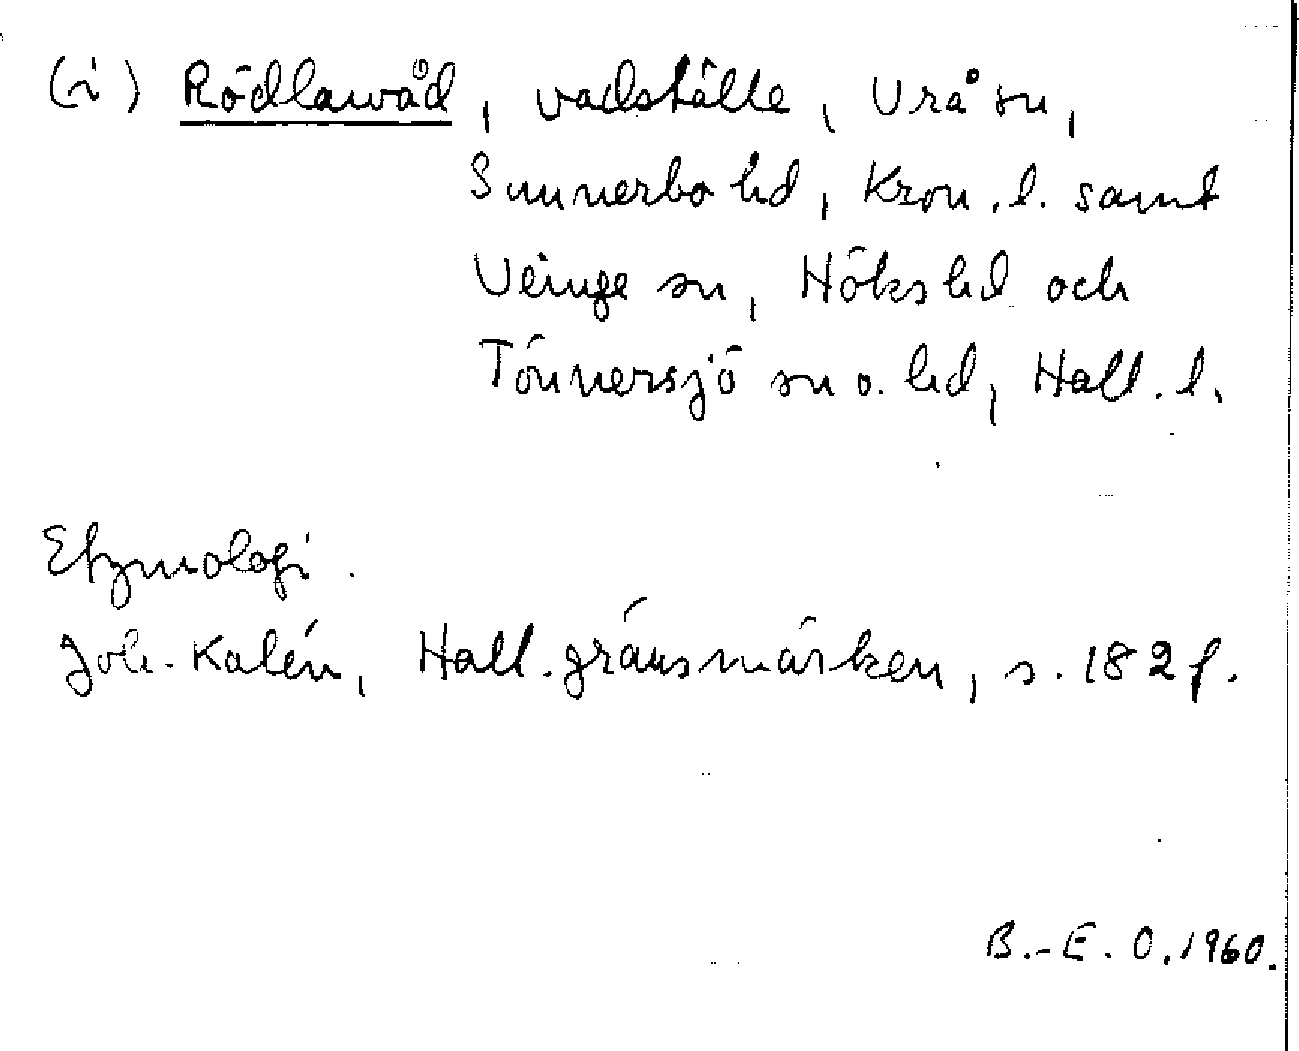 (i) Rödlawåd, vadställe, Urå sn,
Sunnerbo hd, Kron. l. samt
Veinge sn, Höks hd och
Tönnersjö sn o. hd, Hall. l.
Etymologi.
Joh. Kalén, Hall. gränsmärken, s. 182 f.
B.-E. O. 1960.